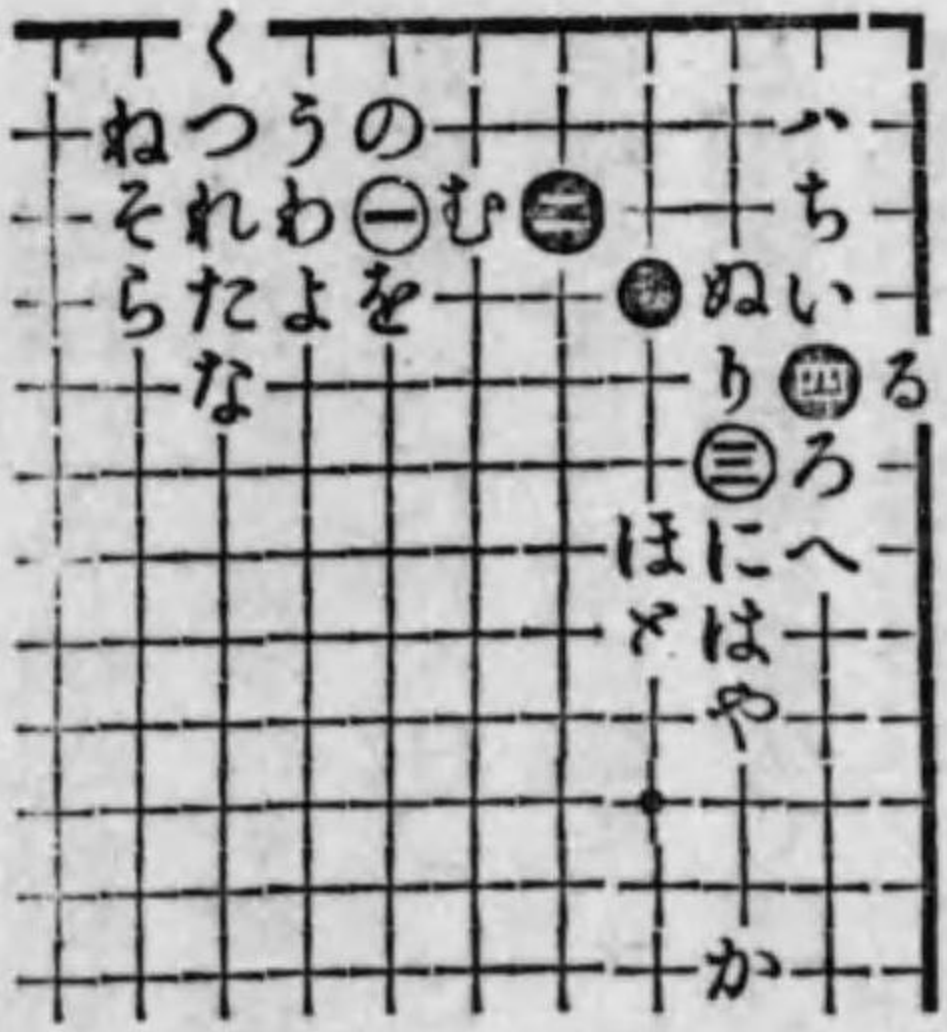 く
ねつうの ハ
それわ一む二 ち
らたよを ぬい
な り四る
三ろ
ほにへ
とは
や
か